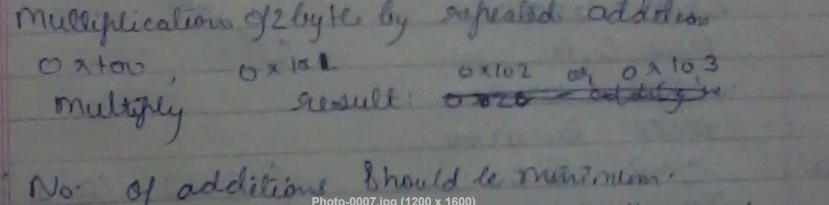 Multiplication of 2 byte by repeated addition
0x100, 0x101 0x102 or 0x103
multiply result:
No. of additions should be minimum.
Photo-0007.jpg (1200 x 1600)